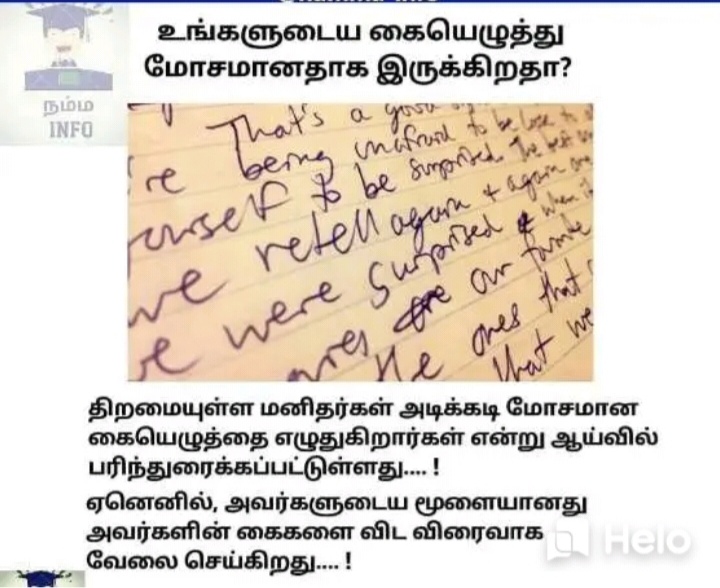 நம்ம
INFO
உங்களுடைய கையெழுத்து
மோசமானதாக இருக்கிறதா?
That's a good
're being unafraid to be lose to
ourself to be surprised. The best
we retell again + again are
e were surprised & when
ories are our favorite
the ones that
that we
திறமையுள்ள மனிதர்கள் அடிக்கடி மோசமான
கையெழுத்தை எழுதுகிறார்கள் என்று ஆய்வில்
பரிந்துரைக்கப்பட்டுள்ளது.... !
ஏனெனில், அவர்களுடைய மூளையானது
அவர்களின் கைகளை விட விரைவாக
வேலை செய்கிறது.... !
Helo